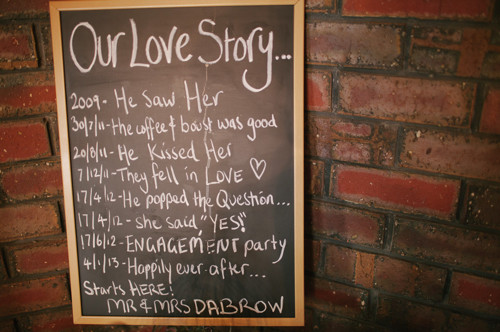 Our Love Story...
2009 - He saw Her
30/7/11 - the coffee & boost was good
20/8/11 - He Kissed Her
7/12/11 - They fell in LOVE ♡
17/4/12 - He popped the Question...
17/4/12 - she said, "YES!"
17/6/12 - ENGAGEMENT party
4/1/13 - Happily ever after...
Starts HERE!
MR & MRS DABROW